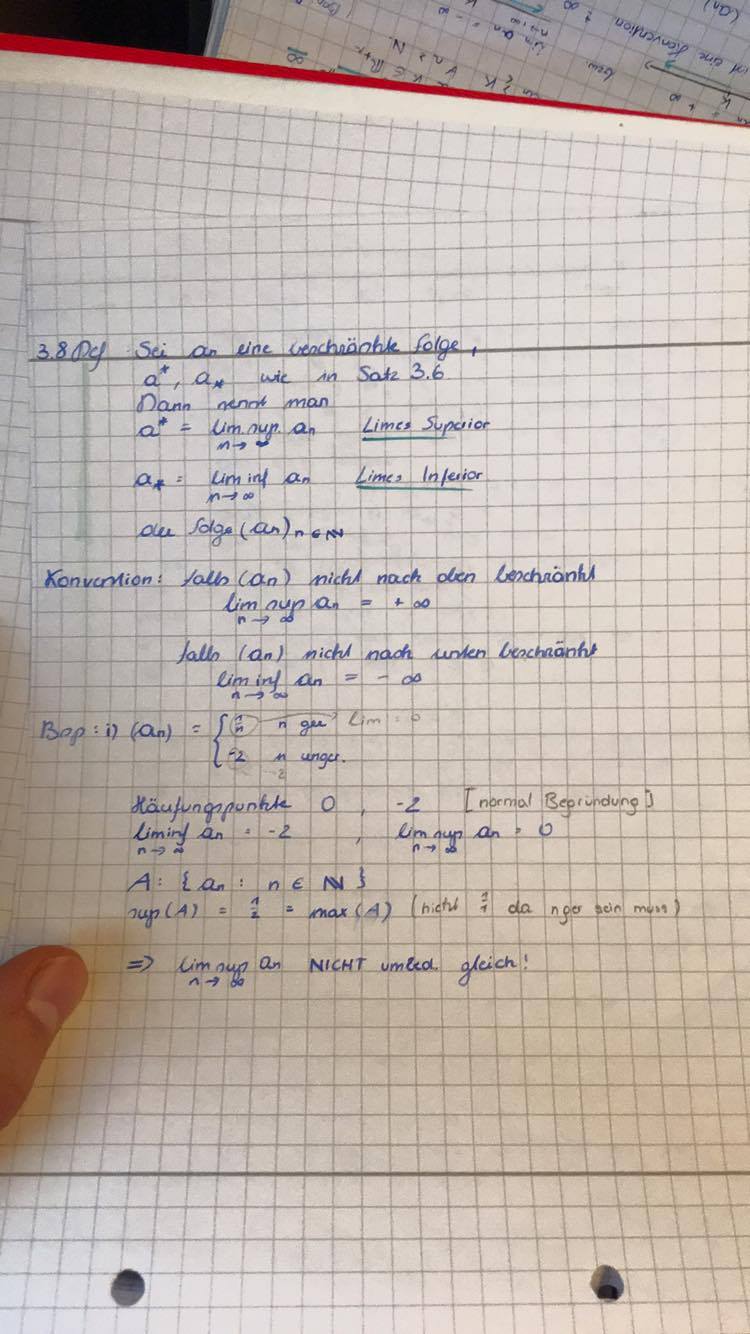 (an)
ist eine Konvention
± ∞
lim an = - ∞
n→∞
bzw.
an ≥ K ∀ n ≥ N.
K ∈ R+
∞
+ ∞
3.8 Def Sei an eine beschränkte Folge,
a*, a* wie in Satz 3.6
Dann nennt man
a* = lim sup an Limes Superior
n→∞
a* = lim inf an Limes Inferior
n→∞
der Folge (an) n∈ℕ
Konvention: falls (an) nicht nach oben beschränkt
lim sup an = + ∞
n→∞
falls (an) nicht nach unten beschränkt
lim inf an = - ∞
n→∞
Bsp: i) (an) = { 1/n n ger lim = 0
-2 n unger.
-2
Häufungspunkte 0, -2 [normal Begründung]
lim inf an = -2, lim sup an = 0
n→∞ n→∞
A: { an : n ∈ ℕ }
sup(A) = 1/2 = max(A) (nicht 1/1 da n ger sein muss)
=> lim sup an NICHT unbed. gleich!
n→∞